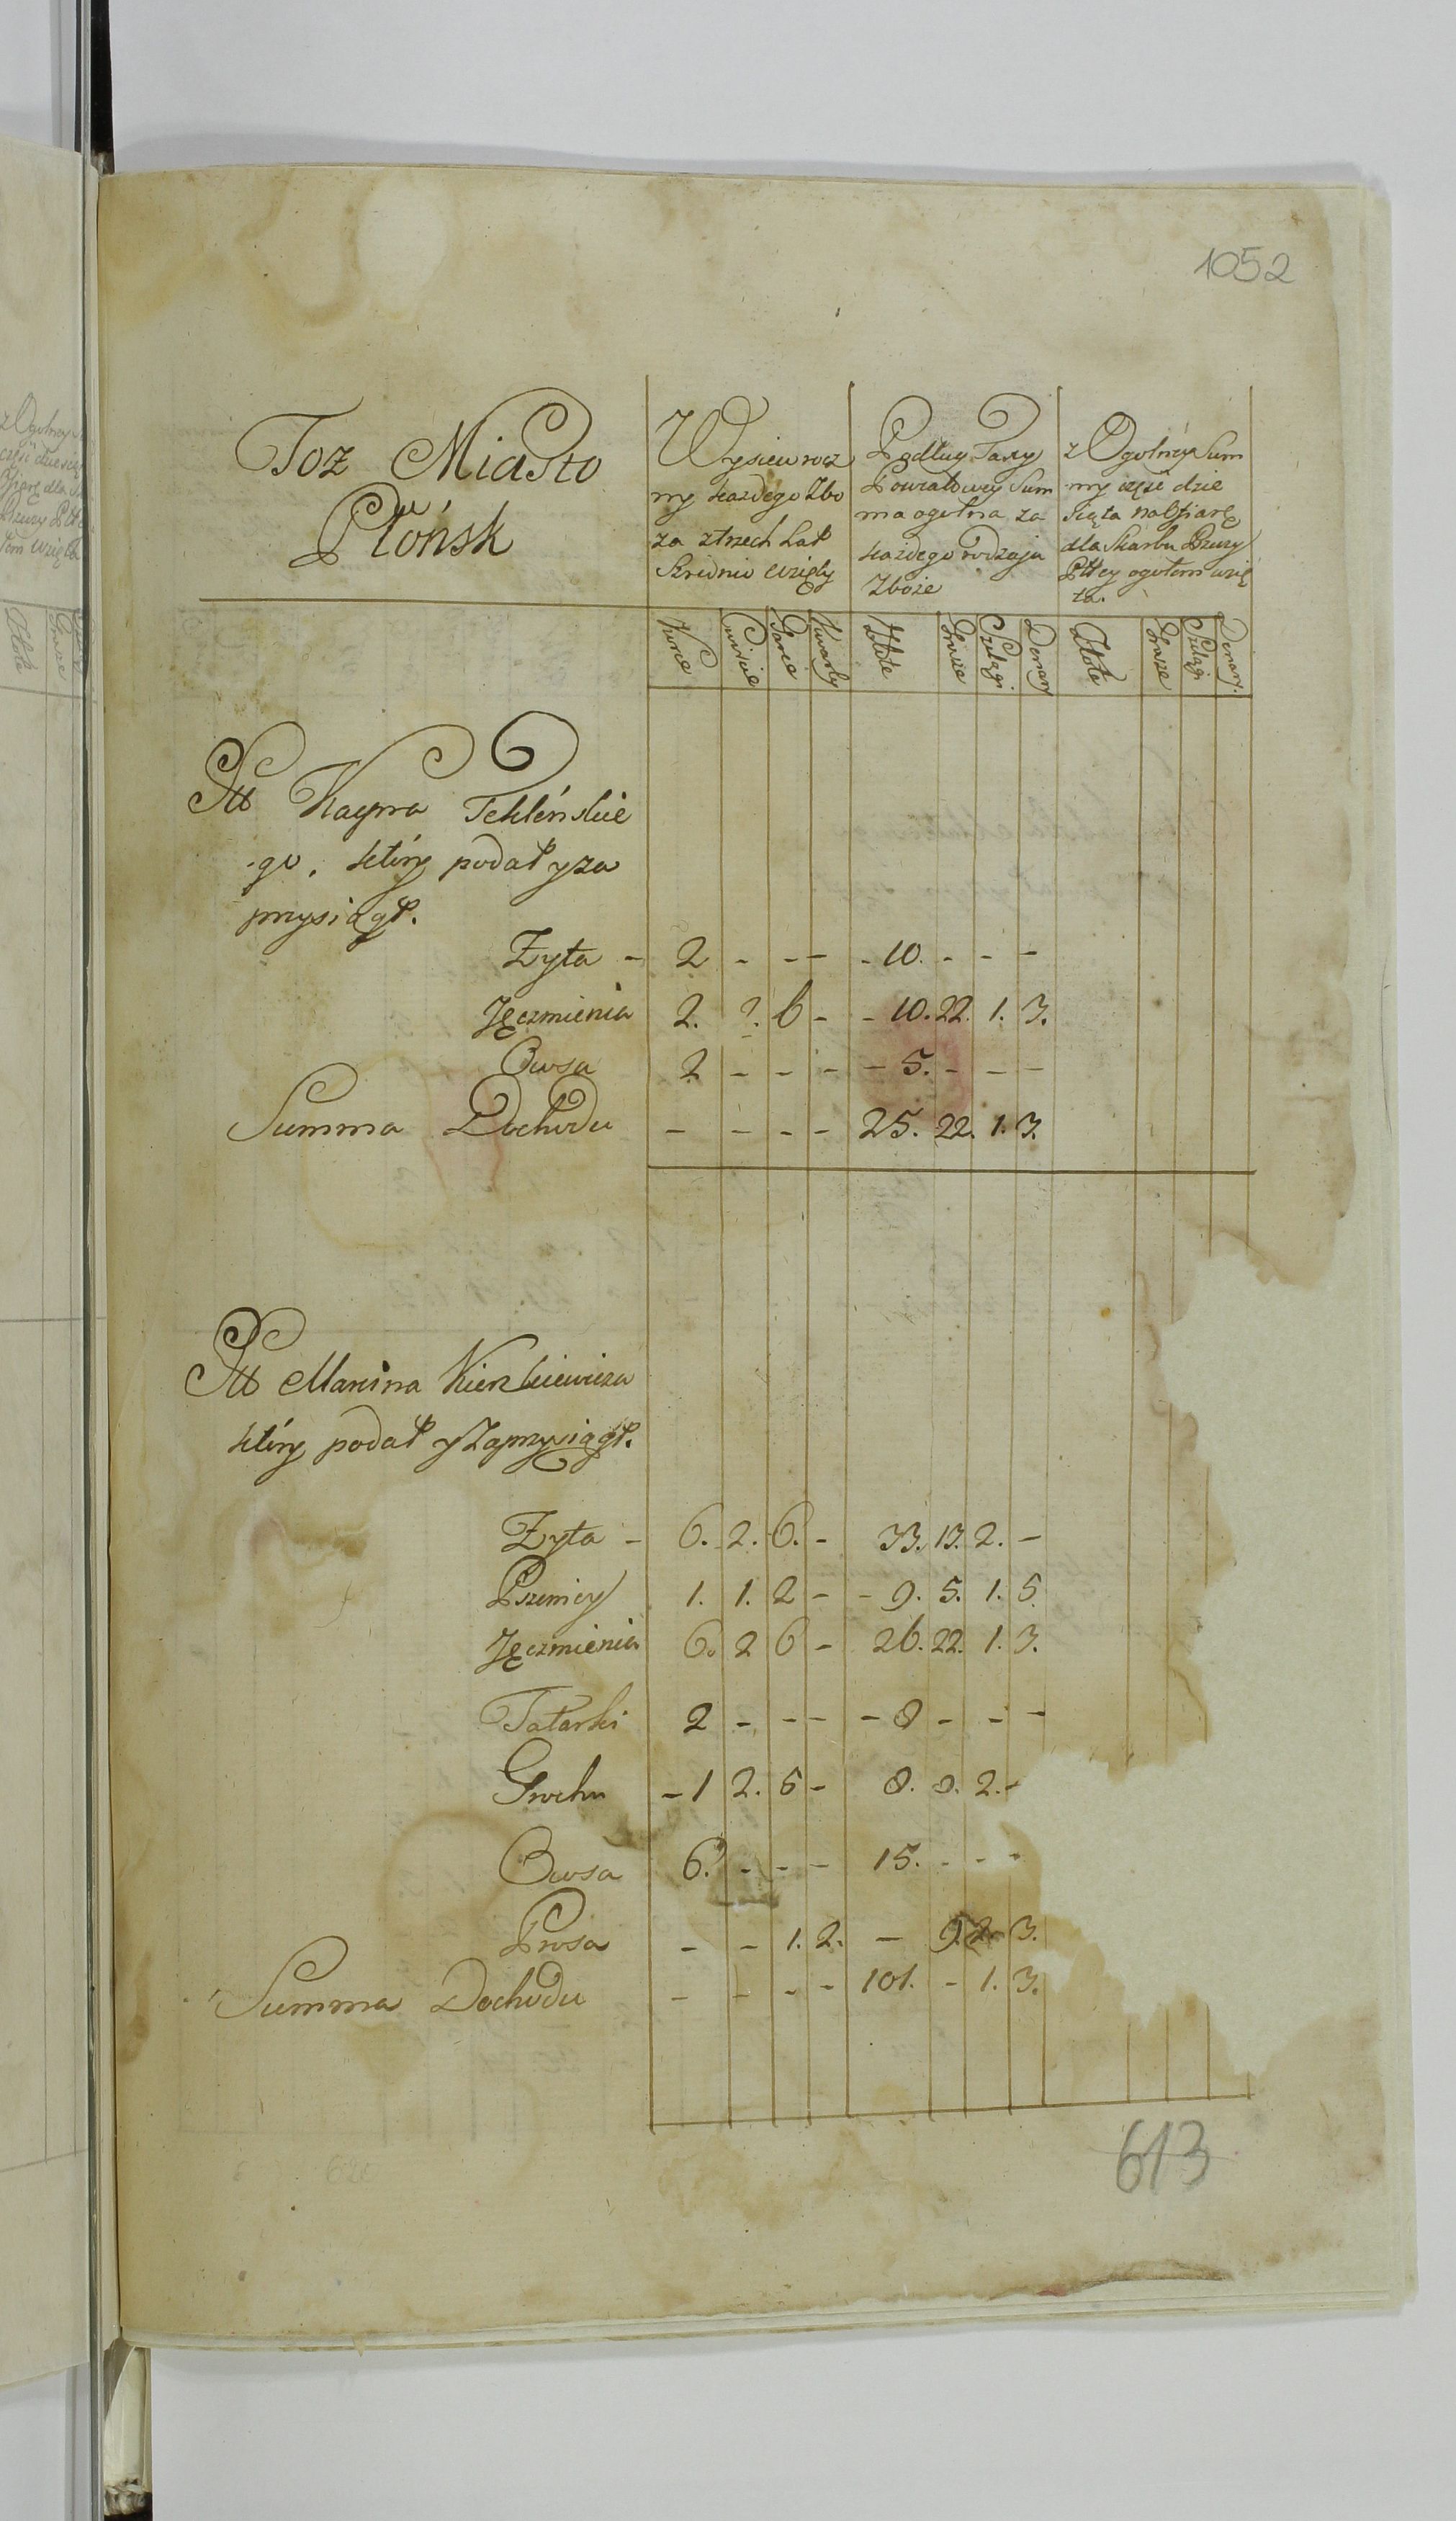 1052
Toz Miasto
Płońsk
Wysiew rocz
ny każdego Zbo
za ztrzech Lat
Srednio wzięty
Podług Taxy
Powiatowey Sum
ma ogolna za
każdego rodzaju
Zboże
z Ogolney Sum
my częsć dzie
siąta na Ofiarę
dla Skarbu Rzeczy
Pttey ogołem wzię
ta.
Korce Cwircie Garce Kwarty Złote Grosze Szelągi Denary Złote Grosze Szelągi Denary.
Ktory podał y za
przysiągł.
Zyta - 2 - - - - 10. - - -
Jęczmienia 2. 2. 6 - - 10. 22. 1. 3.
Owsa 2 - - - - 5. - - -
Summa Dochodu - - - - 25. 22. 1. 3.
Marcina
ktory podał y Zaprzysiągł.
Zyta - 6. 2. 6. - 33. 13. 2. -
Pszenicy 1. 1. 2 - - 9. 5. 1. 5.
Jęczmienia 6. 2 6 - 26. 22. 1. 3.
Tatarki 2 - - - - 8 - - -
Grochu - 1 2. 5 - 8. 8. 2. -
Owsa 6. - - - 15. - - -
Prosa - - 1. 2. - 9. 2. 3.
Summa Dochodu - - - - 101. - 1. 3.
613